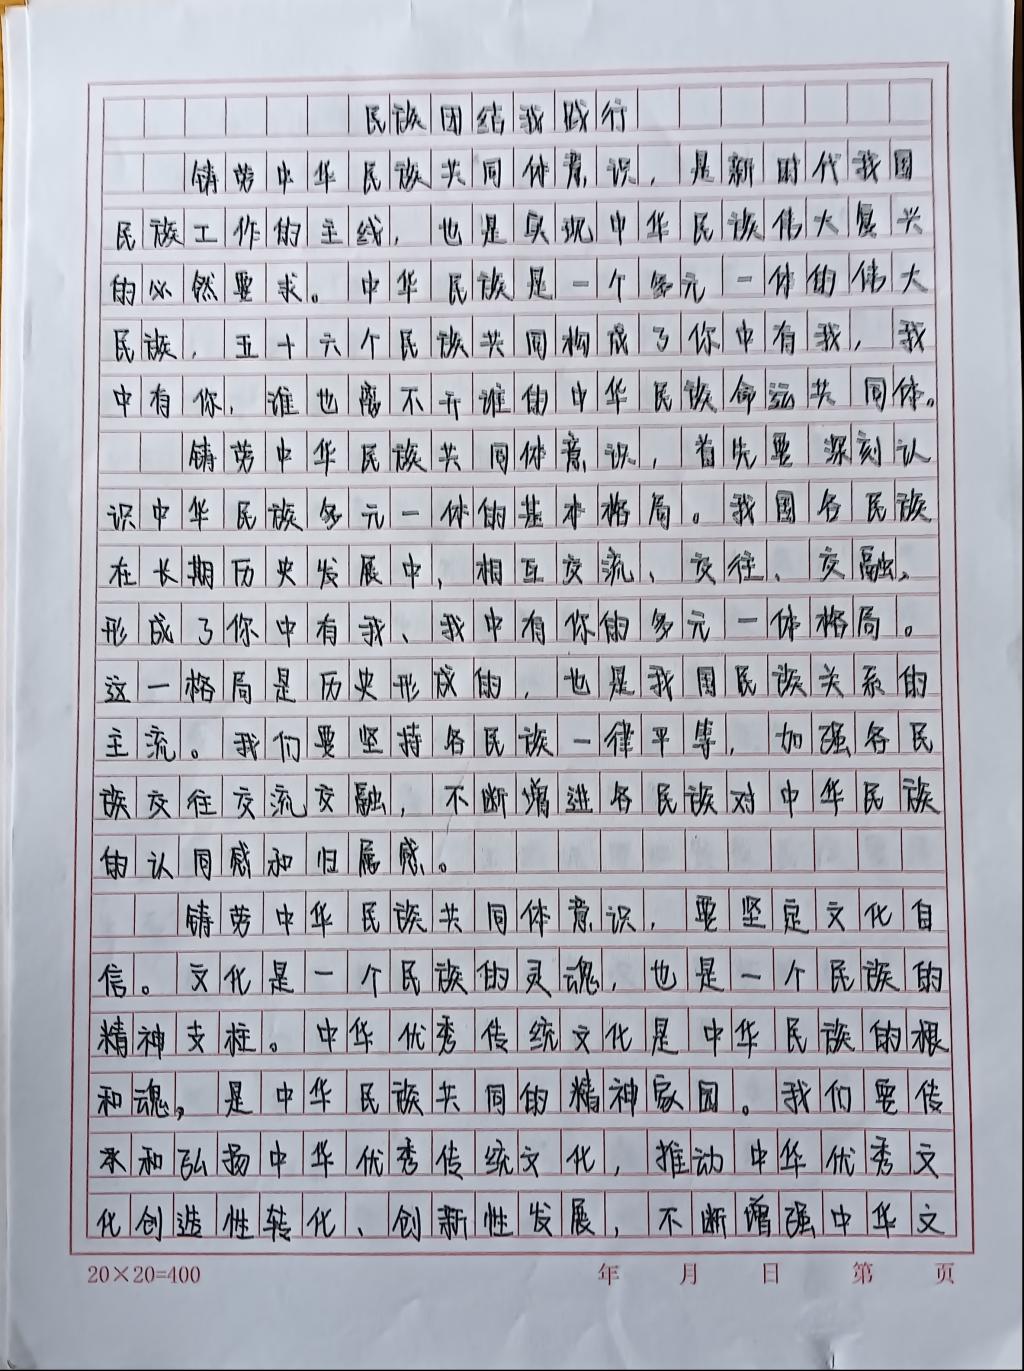 民族团结我践行
铸劳中华民族共同体意识，是新时代我国
民族工作的主线，也是实现中华民族伟大复兴
的必然要求。中华民族是一个多元一体的伟大
民族，五十六个民族共同构成了你中有我，我
中有你，谁也离不开谁的中华民族命运共同体。
铸劳中华民族共同体意识，首先要深刻认
识中华民族多元一体的基本格局。我国各民族
在长期历史发展中，相互交流、交往、交融、
形成了你中有我、我中有你的多元一体格局。
这一格局是历史形成的，也是我国民族关系的
主流。我们要坚持各民族一律平等，加强各民
族交往交流交融，不断增进各民族对中华民族
的认同感和归属感。
铸劳中华民族共同体意识，要坚定文化自
信。文化是一个民族的灵魂，也是一个民族的
精神支柱。中华优秀传统文化是中华民族的根
和魂，是中华民族共同的精神家园。我们要传
承和弘扬中华优秀传统文化，推动中华优秀文
化创造性转化、创新性发展，不断增强中华文
20×20=400 年 月 日 第 页